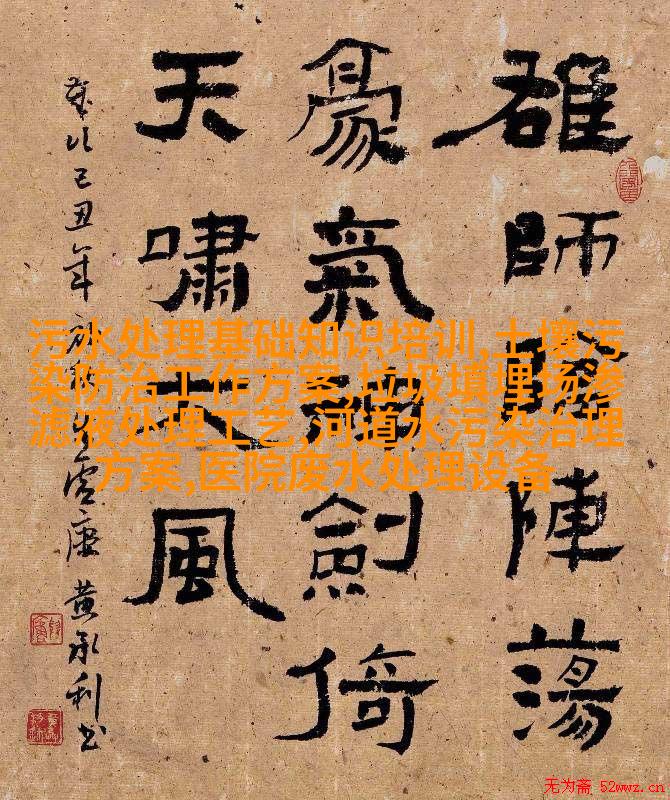 雄師陣蕩
豪氣劍倚
天嘯大風
歲次己丑年初秋黄承利书
污水处理基础知识培训,土壤污
染防治工作方案,垃圾填埋场渗
滤液处理工艺,河道水污染治理
方案,医院废水处理设备
无为斋 52wwz.cn